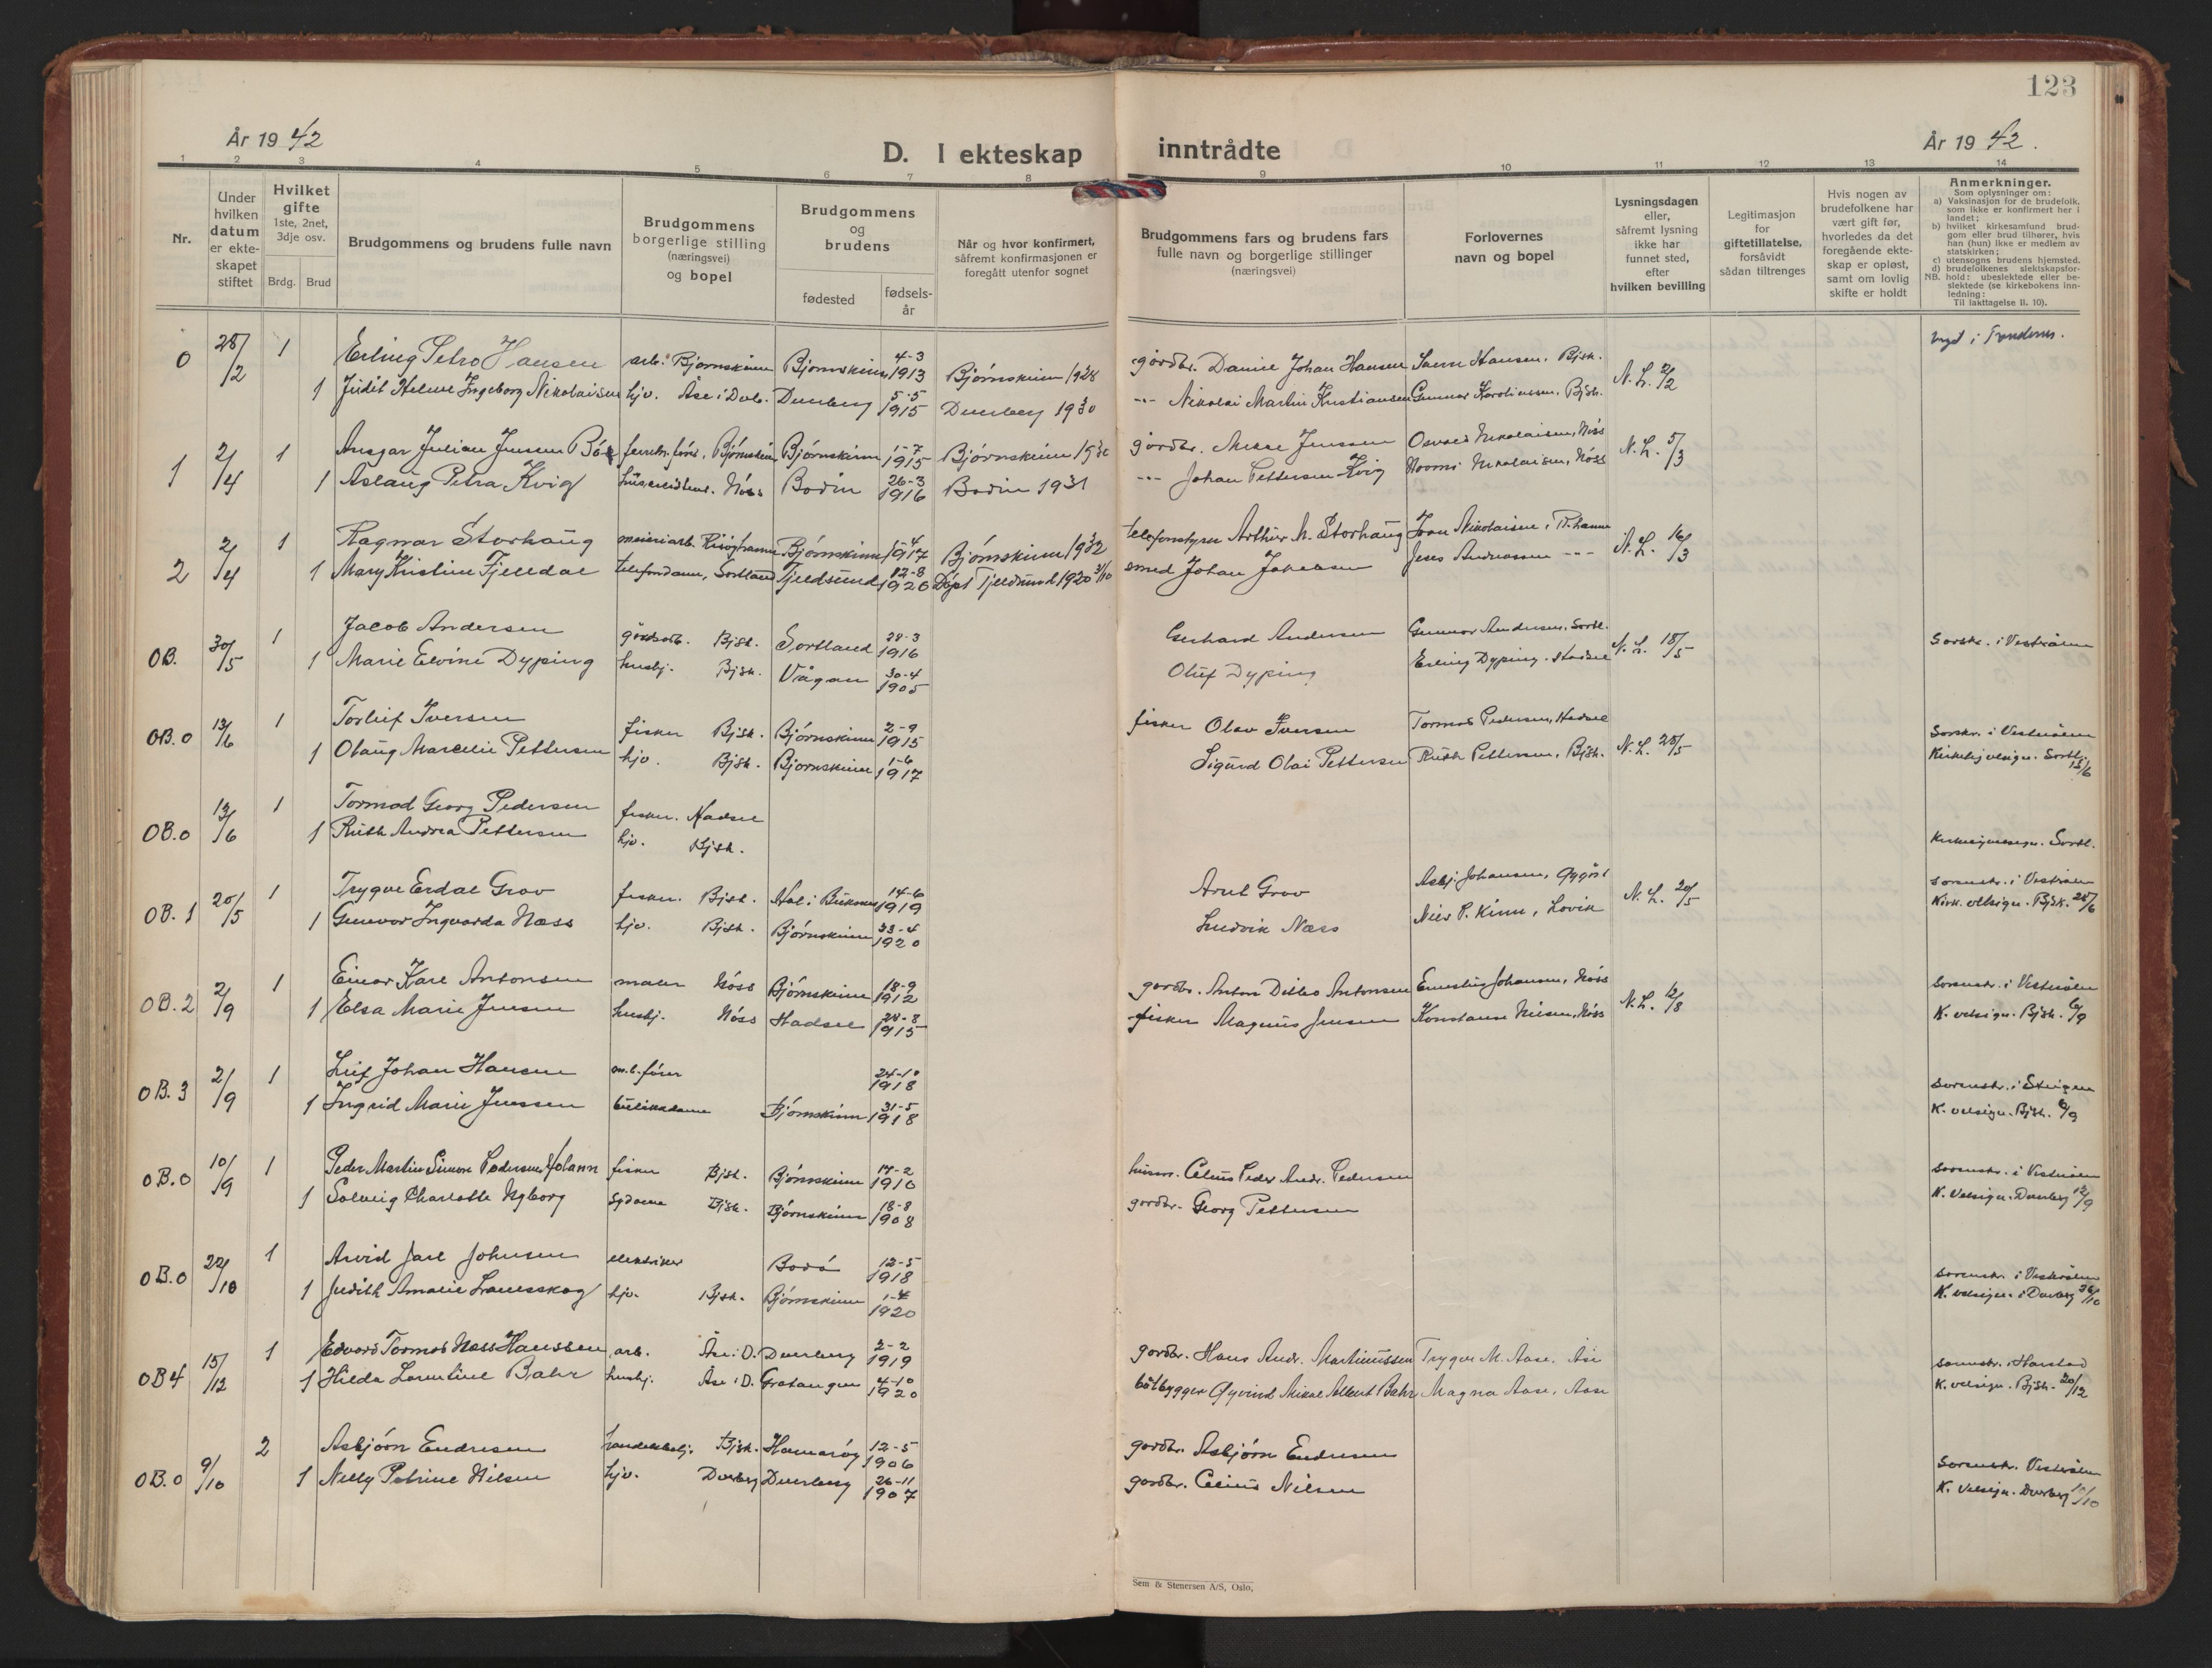 123
År 19 42
D. I ekteskap inntrådte
År 19 42.
1 2 3 4 5 6 7 8 9 10 11 12 13 14
Nr.
Under
hvilken
datum
er ekte-
skapet
stiftet
Hvilket
gifte
1ste, 2net,
3dje osv.
Brdg. Brud
Brudgommens og brudens fulle navn
Brudgommens
borgerlige stilling
(næringsvei)
og bopel
Brudgommens
og
brudens
fødested
fødsels-
år
Når og hvor konfirmert,
såfremt konfirmasjonen er
foregått utenfor sognet
Brudgommens fars og brudens fars
fulle navn og borgerlige stillinger
(næringsvei)
Forlovernes
navn og bopel
Lysningsdagen
eller,
såfremt lysning
ikke har
funnet sted,
efter
hvilken bevilling
Legitimasjon
for
giftetillatelse,
forsåvidt
sådan tiltrenges
Hvis nogen av
brudefolkene har
vært gift før,
hvorledes da det
foregående ekte-
skap er opløst,
samt om lovlig
skifte er holdt
Anmerkninger.
Som oplysninger om:
a) Vaksinasjon for de brudefolk,
som ikke er konfirmert her i
landet;
b) hvilket kirkesamfund brud-
gom eller brud tilhører, hvis
han (hun) ikke er medlem av
statskirken;
c) utensogns brudens hjemsted.
d) brudefolkenes slektskapsfor-
NB. hold: ubeslektede eller be-
slektede (se kirkebokens inn-
ledning:
Til iakttagelse II. 10).
0 28/2 1 Erling Petro Hansen arb. Bjørnskinn Bjørnskinn 4-3 1913 Bjørnskinn 1928 gårdbr. Danie Johan Hansen Hansen, Bjsk. N. L. 2/2 vigd i
1 Judit Helene Ingeborg Nikolaisen hjv. Åse i Dvb. Dverberg 5-5 1915 Dverberg 1930 --- Nikolai Martin Kristiansen Gunnar Karolinssen, Bjsk.
1 2/4 1 Ansgar Julian Jensen Bjørnskinn Bjørnskinn 1-7 1915 Bjørnskinn 1930 gårdbr. Jenssen Nikolaisen, Nöss N. L. 5/3
1 Aslaug Petra Kvig Nöss Bodin 26-3 1916 Bodin 1931 --- Johan Pettersen Kvig Noomi Nikolaisen, Nöss
2 2/4 1 Ragnar Storhaug meieriarb. Risöyhamn Bjørnskinn 1917 Bjørnskinn 1932 telefonstyrer Arthur M. Storhaug Nikolaisen, R.hamn N. L. 16/3
1 Mary Kristine Fjelldal telefondame, Sortland Tjeldsund 12-8 1920 Döpt Tjeldsund 1920 3/10 smed Johan Jakobsen Jens Andreassen ---
OB. 30/5 1 Jacob Andersen gårdsarb. Bjsk. Sortland 28-3 1916 Gerhard Andersen Gunnar Andersen, Sortl. N. L. 18/5 Sorskr. i Vesterålen
1 Marie Elvine Dyping husbj. Bjsk. Vågan 30-4 1905 Oluf Dyping Erling Dyping, Hadsel
OB.0 13/6 1 Torleif Iversen fisker Bjsk. Bjørnskinn 2-9 1915 fisker Olav Iversen Tormod Pedersen, Hadsel N. L. 28/5 Sorskr. i Vesterålen
1 Olaug Marcelie Pettersen hjv. Bjsk. Bjørnskinn 1-6 1917 Sigurd Olai Pettersen Ruth Pettersen, Bjsk. Kirkelig velsign. Sortl. 13/6
OB.0 13/6 1 Tormod Georg Pedersen fisker. Hadsel
1 Ruth Andrea Pettersen hjv. Bjsk. Kirkelig velsign. Sortl.
OB.1 20/5 1 Trygve Erdal Grav fisker. Bjsk. Hol i Buksnes 14-6 1919 Arnt Grav Asbj. Johansen, N. L. 20/5 sorenskr. i Vesterålen
1 Gunvor Ingvarda Næss hjv. Bjsk. Bjørnskinn 23-4 1920 Ludvik Næss Nils P. Kinn, Lovik Kirk. velsign. Bjsk. 28/6
OB.2 2/9 1 Einar Karl Antonsen maler Nöss Bjørnskinn 18-9 1912 gårdbr. Anton Ditlev Antonsen Johansen, Nöss N. L. 12/8 sorenskr. i Vesterålen
1 Elsa Marie Jensen husbj. Nöss Hadsel 28-8 1915 fisker Magnus Jensen Konstanse Nilsen, Nöss K. velsign. Bjsk. 6/9
OB.3 2/9 1 Leif Johan Hansen m.b. fører 24-10 1918 sorenskr. i Steigen
1 Ingrid Marie Jenssen butikkdame Bjørnskinn 31-5 1918 K. velsign. Bjsk. 6/9
OB.0 10/9 1 Peder Martin Simon Pedersen fisker Bjsk. Bjørnskinn 17-2 1910 husm. Celius Peder Andr. Pedersen sorenskr. i Vesterålen
1 Solveig Charlotte Nyborg sydame Bjsk. Bjørnskinn 18-8 1908 gårdbr. Georg Pettersen K. velsign. Dverberg 12/9
OB.0 22/10 1 Arvid Jarl Johnsen elektriker Bodö 12-5 1918 sorenskr. i Vesterålen
1 Judith Amalie Lanesskog hjv. Bjsk. Bjørnskinn 1-4 1920 K. velsign. i Dverberg /10
OB4 15/12 1 Edvard Tormod Næss Hanssen arb. Åse i D. Dverberg 2-2 1919 gårdbr. Hans Andr. Martinussen Trygve M. Aase, Åse sorenskr. i Harstad
1 Hilda Lorentine Bahr husbj. Åse i D. Gratangen 4-10 1920 båtbygger Øyvind Mikal Albert Bahr Magna Aase, Aase K. velsign. Bjsk. 20/12
OB.0 9/10 2 Asbjörn Endresen handelsbetj. Bjsk. Hamaröy 12-5 1906 gårdbr. Asbjörn Endresen sorenskr. Vesterålen
1 Nelly Petrine Nilsen hjv. Dverberg Dverberg 26-11 1907 gårdbr. Celius Nilsen K. velsign. Dverberg 10/10
Sem & Stenersen A/S, Oslo.